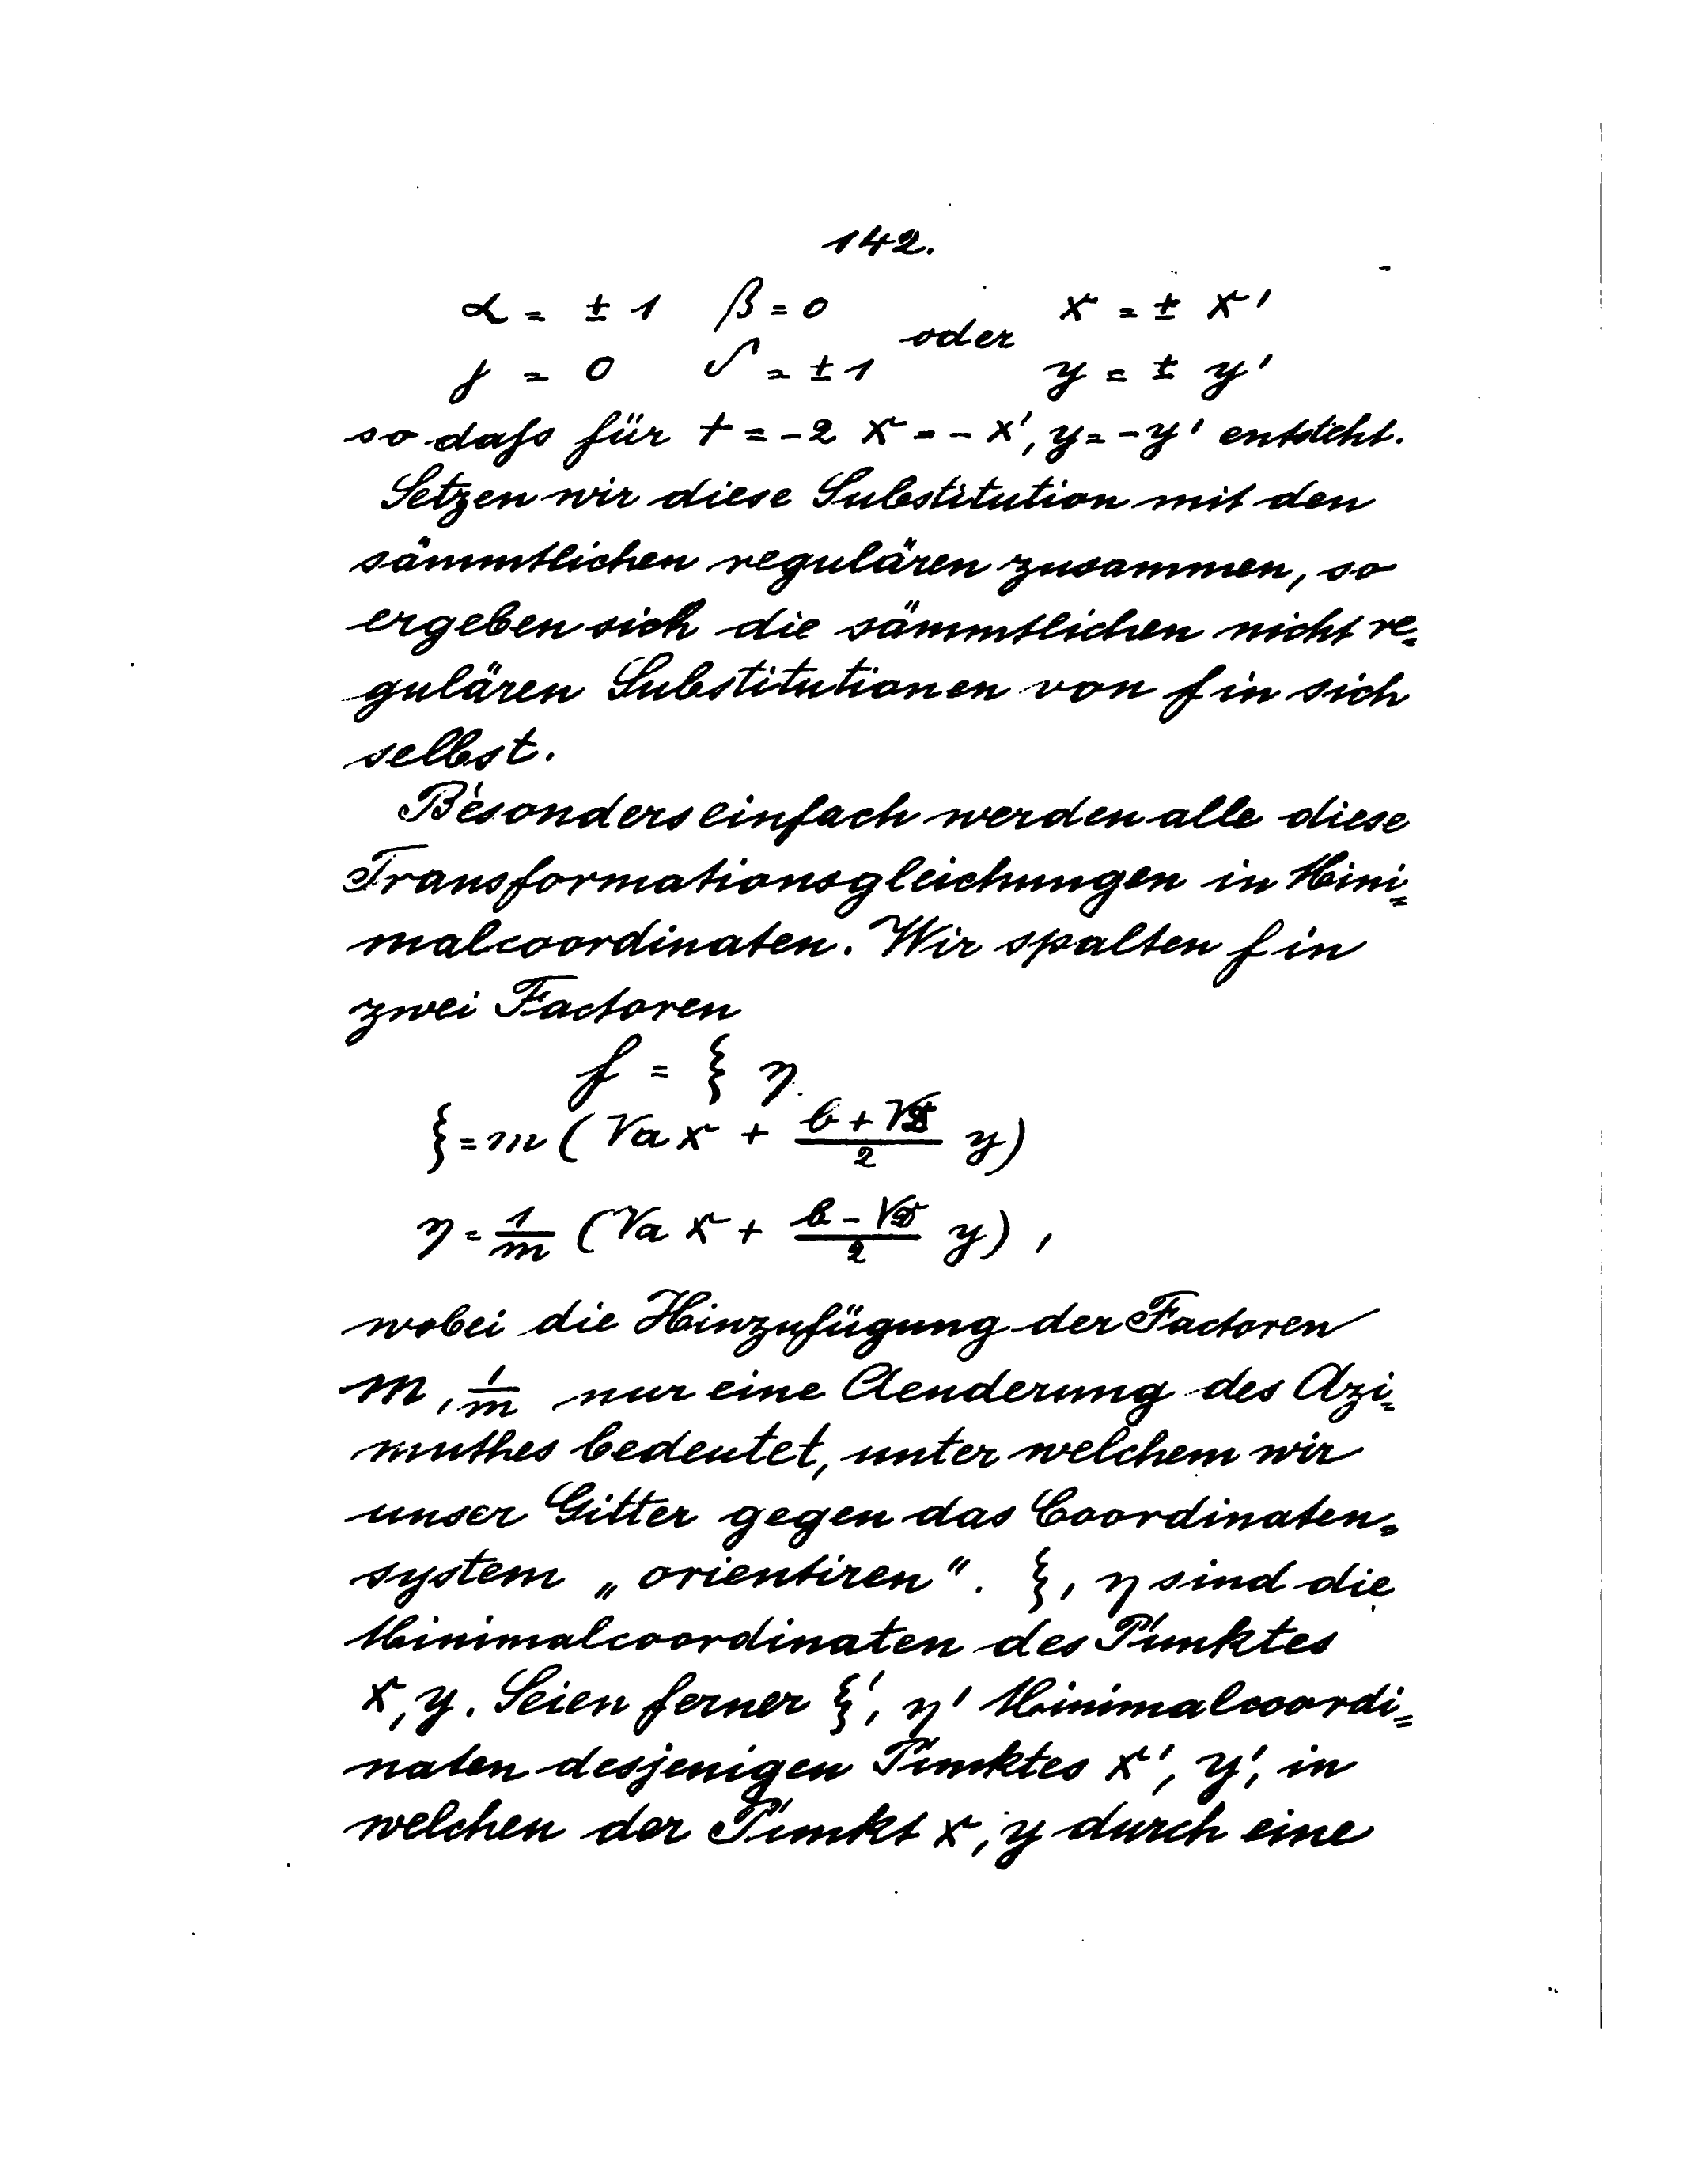 142.
α = ± 1 β = 0 oder x = ± x'
γ = 0 δ = ± 1 y = ± y'
so daſs für t = -2 x = - x', y = - y' entsteht.
Setzen wir diese Substitution mit den
sämmtlichen regulären zusammen, so
ergeben sich die sämmtlichen nicht re=
gulären Substitutionen von f in sich
selbst.
Besonders einfach werden alle diese
Transformationsgleichungen in Mini=
malcoordinaten. Wir spalten f in
zwei Factoren
f = ξ η.
ξ = m (√a x + (b + √D)/2 y)
η = 1/m (√a x + (b - √D)/2 y),
wobei die Hinzufügung der Factoren
m, 1/m nur eine Aenderung des Azi=
muthes bedeutet, unter welchem wir
unser Gitter gegen das Coordinaten=
system „orientiren". ξ, η sind die
Minimalcoordinaten des Punktes
x, y. Seien ferner ξ', η' Minimalcoordi=
naten desjenigen Punktes x', y', in
welchen der Punkt x, y durch eine